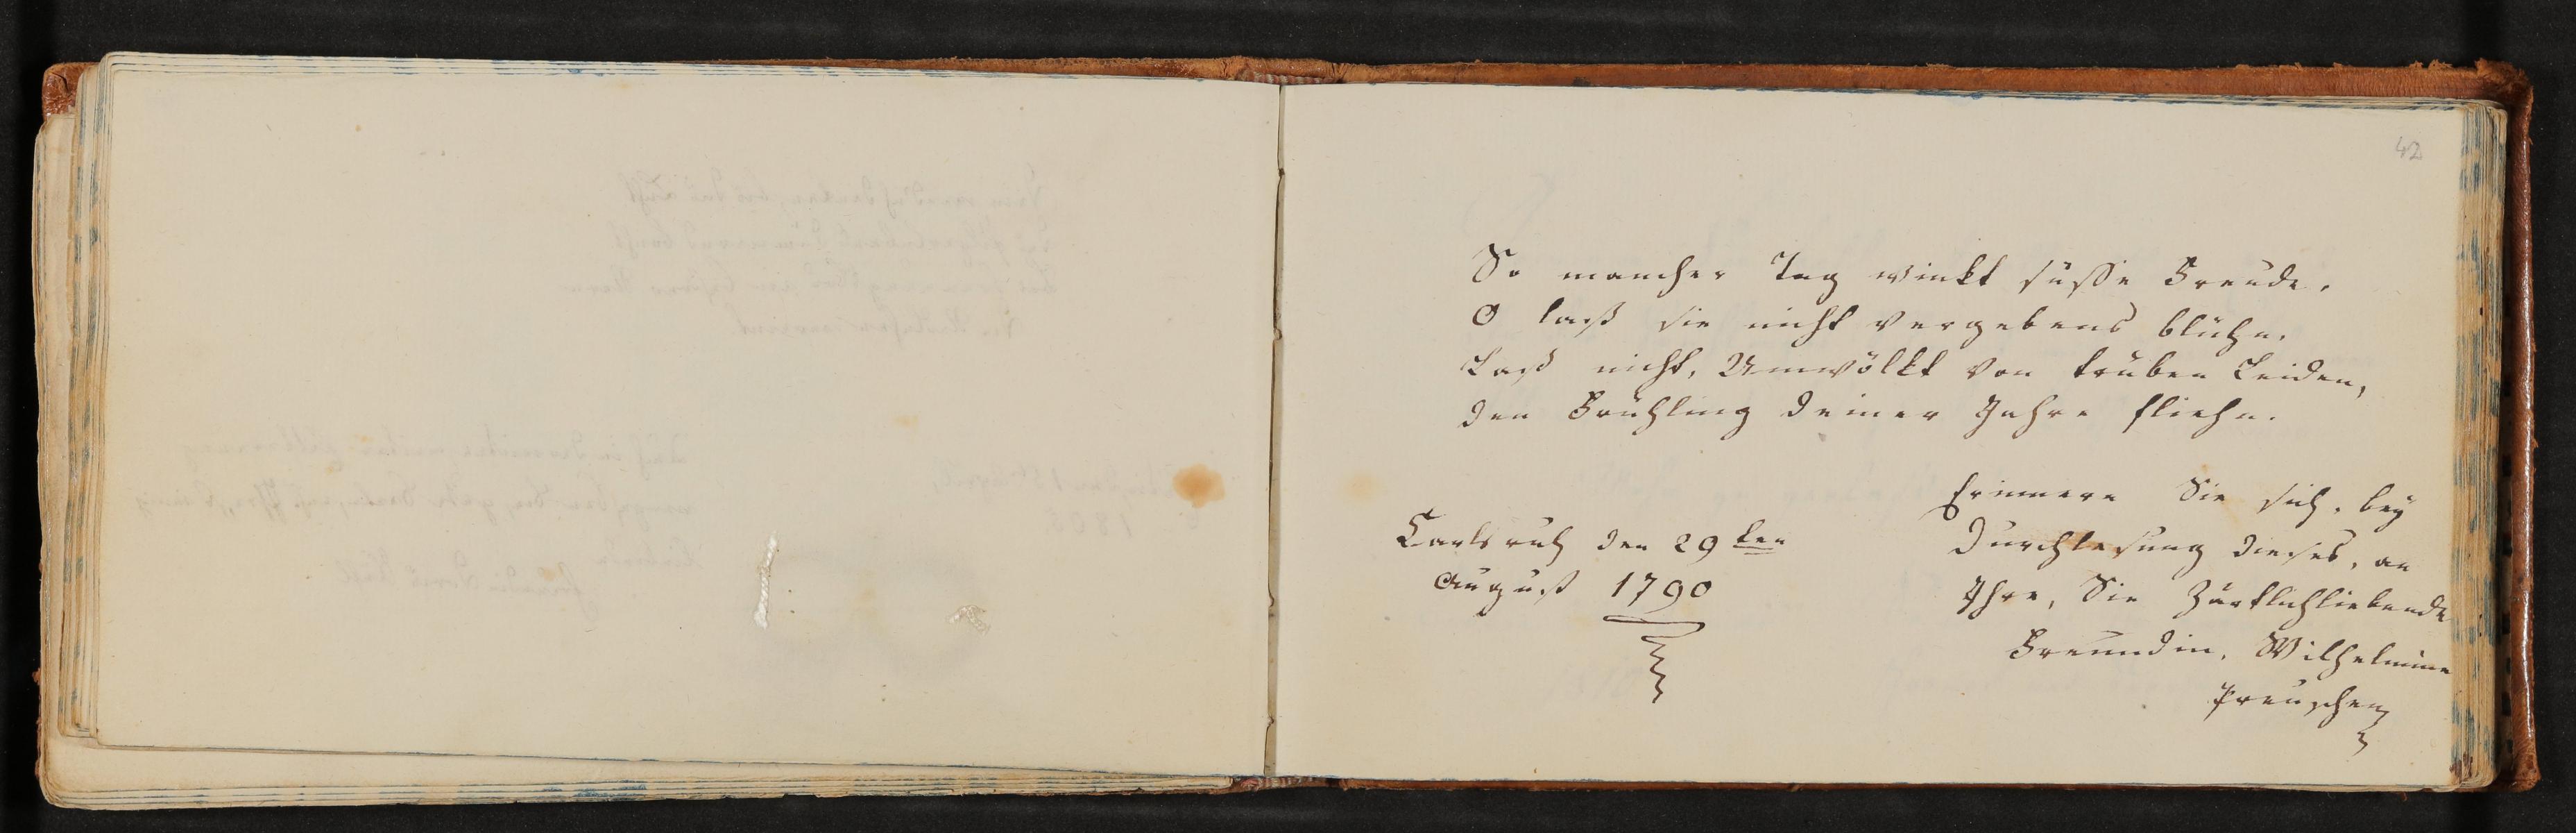 42
So mancher Tag winkt süsse Freude.
O laß sie nicht vergebens blühn.
Laß nicht, Umwölkt von trüben Leiden,
den Frühling deiner Jahre fliehn.
Carlsruh den 29ten
August 1790
Erinnern Sie sich, bey
Durchlesung dieses, an
Ihre, Sie Zärtlichliebende
Freundin, Wilhelmine
Preuschen